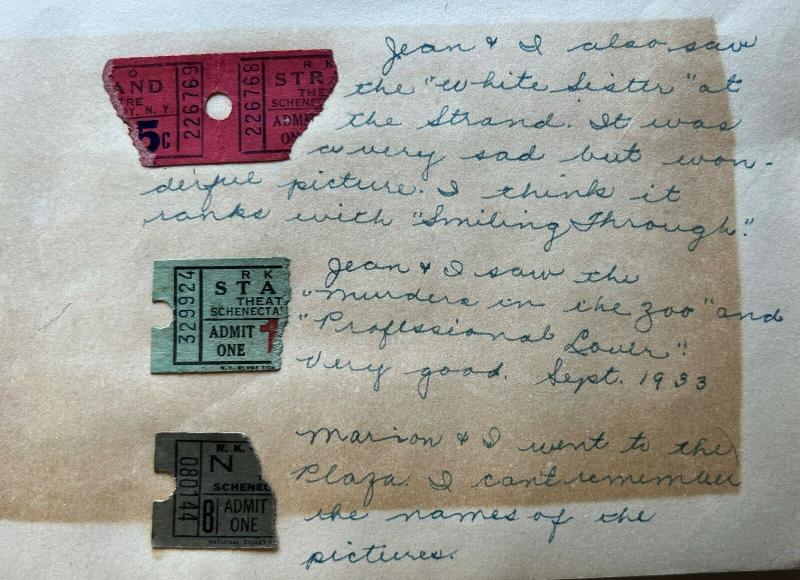 Jean & I also saw
the "White Sister" at
the Strand. It was
a very sad but won-
derful picture. I think it
ranks with "Smiling Through".
O
AND
RE
Y, N. Y.
5c
226769
226768
R K
STR
THE
SCHENEC
ADMI
ON
Jean & I saw the
"Murders in the zoo" and
"Proffessional Lover".
Very good. Sept. 1933
329924
R K
STA
THEAT
SCHENECTA
ADMIT 1
ONE
Marion & I went to the
Plaza. I can't remember
the names of the
pictures.
080144
R. K.
N
SCHENEC
8
ADMIT
ONE
NATIONAL TICKET